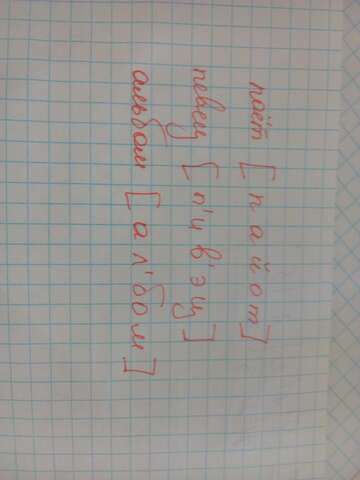 поёт [п а й о т]
певец [п' и в' э ц]
альбом [а л' б о м]